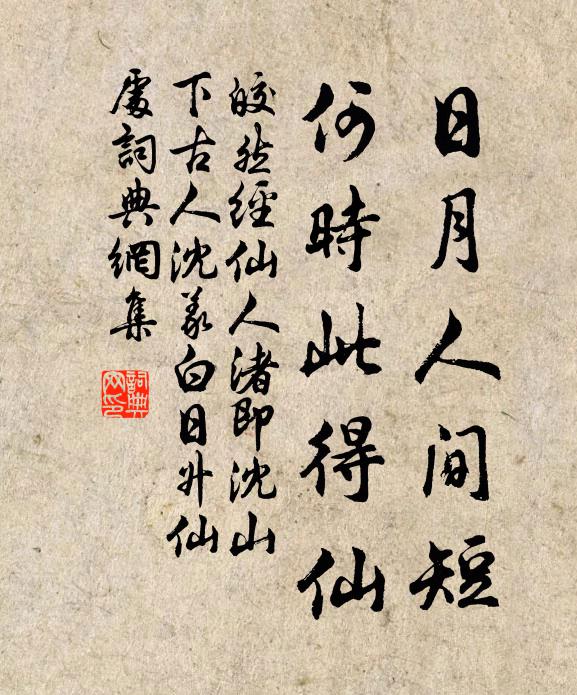 日月人间短
何時此得仙
皎然經仙人渚即沈山
下古人沈羲白日升仙
處詞典網集
詞典
网印